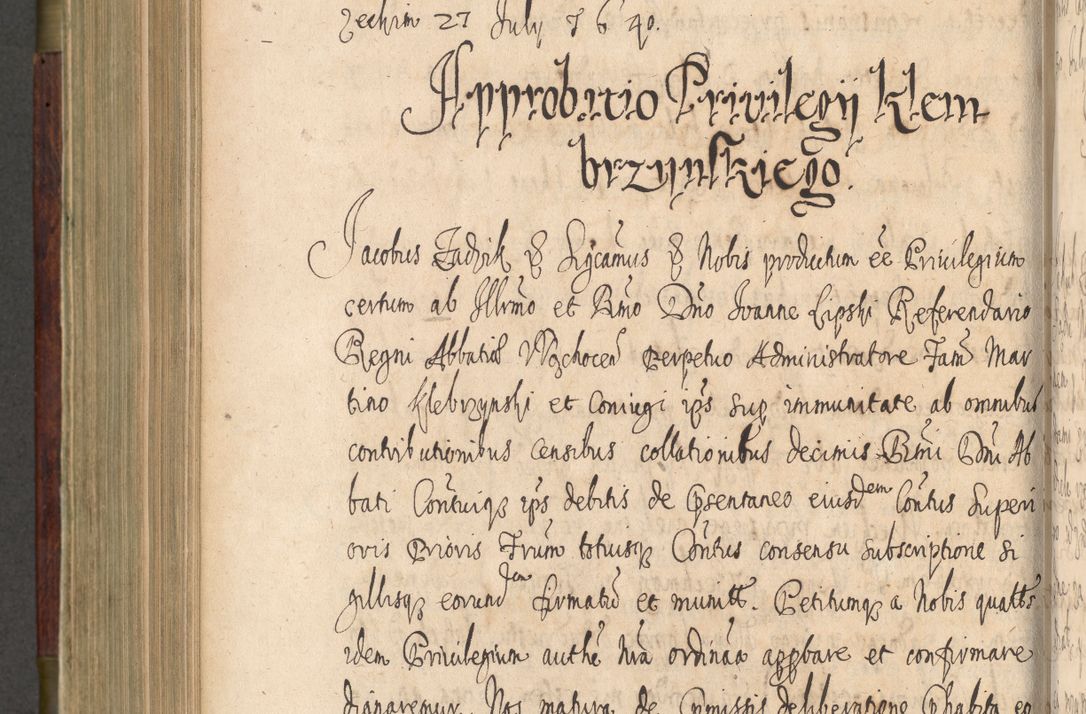 27 July 1640.
Approbatio Privilegij Klem
brzynskiego.
Jacobus Zadzik & Sigcamus & Nobis productum ee Privilegium
certum ab Illrmo et Rmo Dno Joanne Lipski Referendario
Regni Abbatiae Wąchocen perpetuo Administratore Fam Mar
tino Klebrzynski et Coniugi ips sup immunitate ab omnibus
contributionibus censibus collationibus decimis Rmi Dni Ab
bati Contuiq ips debitis de Psentaneo eiusdem Contus Superi
oris Prioris Frum totiusq Contus consensu subscriptione si
gillisq eorundem firmatu et munitt. Petitumq a Nobis quatts
idem Privilegium authe nra ordinaa appbare et confirmare
dignaremur. Nos matura de Pmissis deliberatione Phabita eo